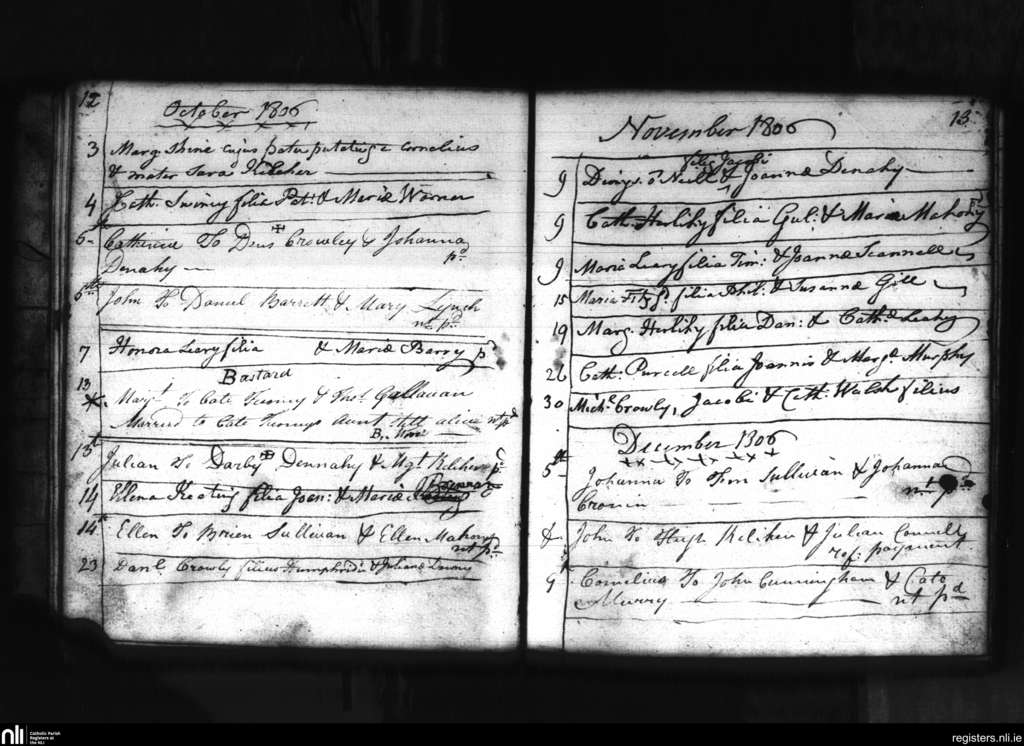 12
October 1806
3 Marg. Shine cujus pater putative Cornelius
& mater Sara Kelcher
4 Cath. Swiney filia Pat. & Mariæ Warner
6th Catherine To Dens Crowley & Johanna pd
Denahy
6th John To Daniel Barrett & Mary Lynch
nt pd
7 Honora Leary filia & Mariæ Barry pd
Bastard
13 Mary To Cate Twomy & Thos Gallavan
Married to Cate Twomys Aunt still alive nt pd
13th Julian To Darby Dennahy & Mgt Kelcher pd
Brennan
14 Ellena Keating filia Joan: & Mariæ
14th Ellen To Brien Sullivan & Ellen Mahony
nt pd
23 Danl. Crowly filius Humphridi & Julianæ
13
November 1806
filis Jacobi
9 Dinys. O Neill & Joannæ Denahy
9 Cath. Herlihy filia Gul: & Maria Mahony
9 Maria Leary filia Tim: & Joannæ Scannell
15 Maria Fitzgd. filia Phil: & Susanna Gill
19 Marg. Herlihy filia Dan: & Cath. Leahy
26 Cath. Purcell filia Joannis & Margt. Murphy
30 Michl. Crowly, Jacobi & Cath. Walsh filius
December 1806
5th Johanna To Tim Sullivan & Johanna
Cronin nt pd
& John To Hugh Keliher & Julian Connell
refs. payment
9th Cornelius To John Cunningham & Cate
Murry nt pd
nli
Catholic Parish
Registers at
the NLI
registers.nli.ie